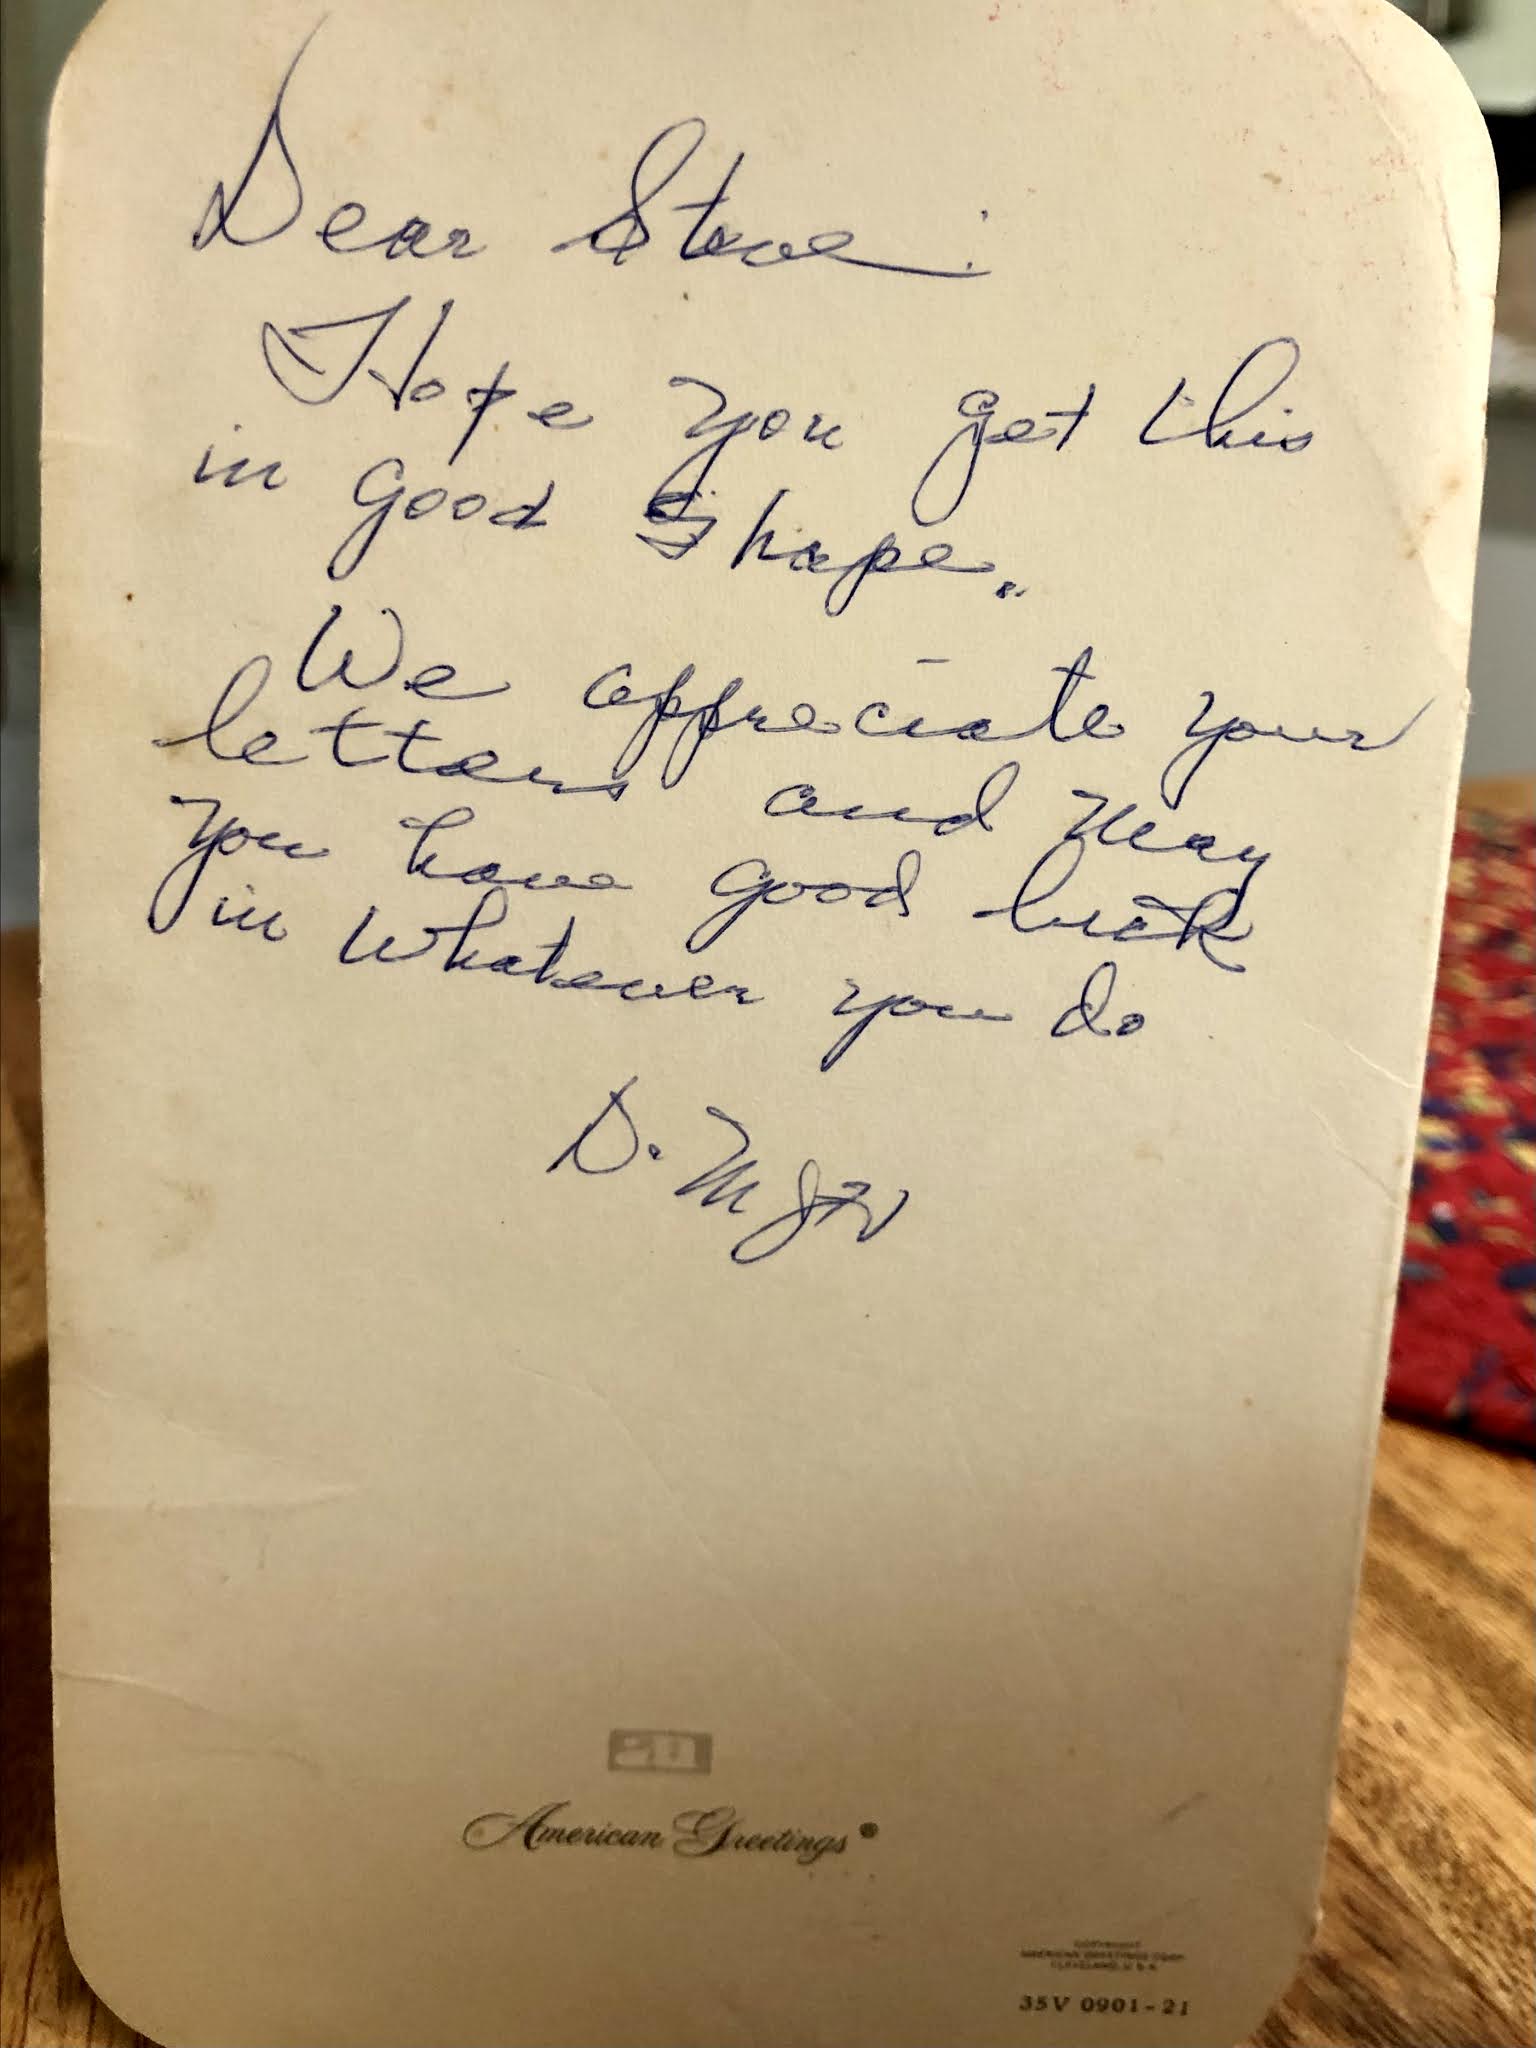 Dear Steve:
Hope you get this
in good shape.
We appreciate your
letters and may
you have good luck
in whatever you do
D.
American Greetings®
COPYRIGHT
AMERICAN GREETINGS CORP.
CLEVELAND, U.S.A.
35V 0901-21